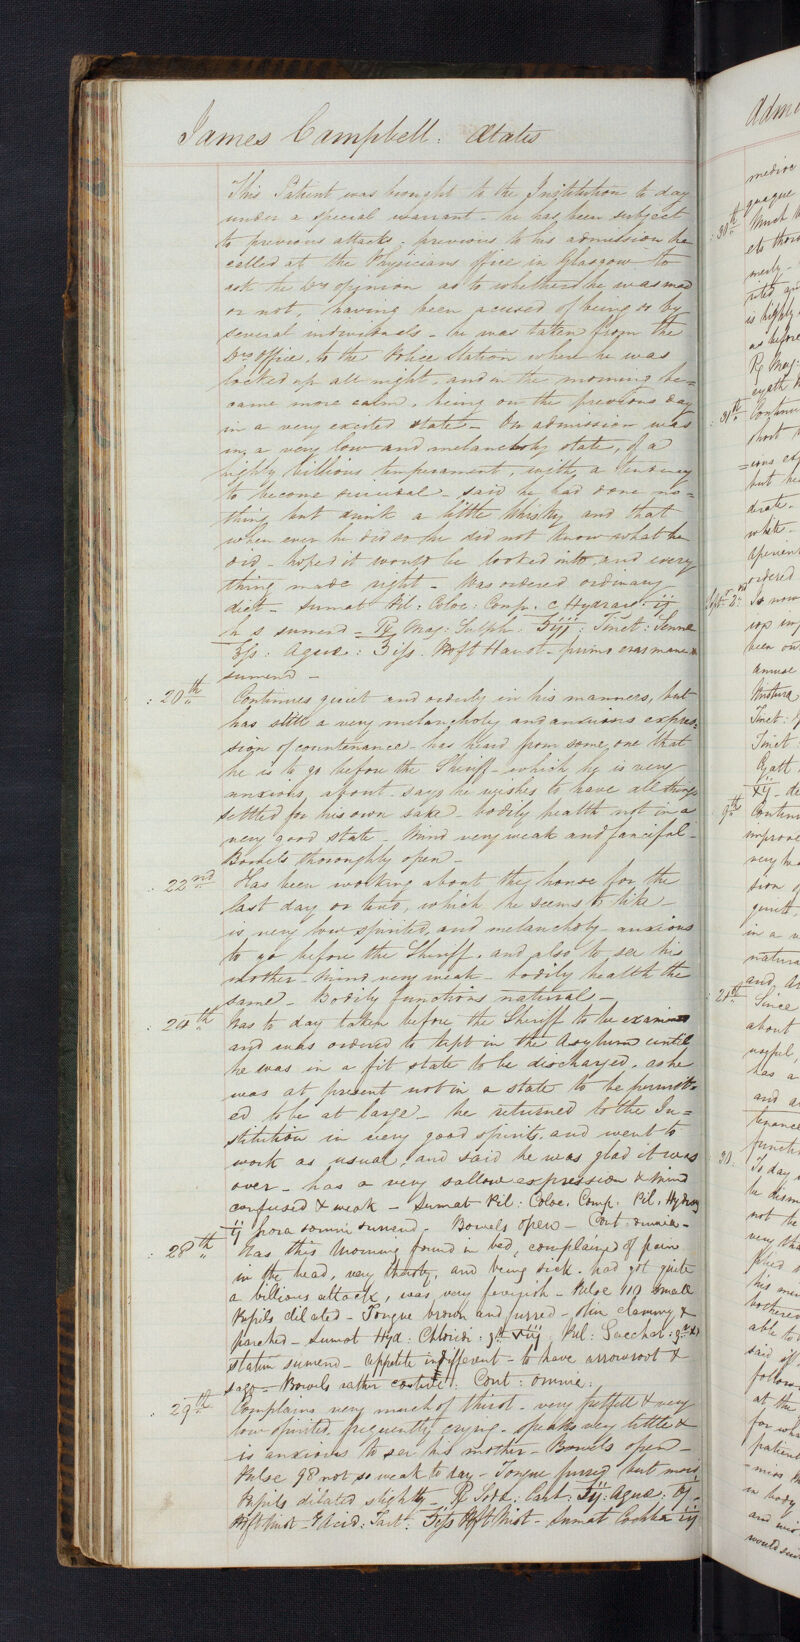 James Campbell. Ætatis
This Patient was brought to the Institution to day
under a special warrant - he has been subject
to previous attacks - previous to his admission he
called at the Physicians office in Glasgow to
ask the Drs opinion as to whether he was mad
or not, having been acused of being so by
several individuals - he was taken from the
Drs Office, to the Police Station where he was
locked up all night, and in the morning be=
came more calm, being on the previous day
in a very excited state - On admission was
in a very low and melancholy state, of a
highly billious temperament, with a tendency
to become suicidal - said he had done no=
thing but drink a little Whisky and that
when ever he did so he did not know what he
did - hoped it would be looked into and every
thing made right - Was ordered ordinary
diet - Sumat Pil: Coloc: Comp. c Hydrarg. ij
h s sumend - Rx Mag: Sulph: ʒiij: Tinct: Sennæ
ʒfs: Aquæ: ℥ifs. Mft Haust - primo cras mane
sumend -
20th Continues quiet and orderly in his manners, but
has still a very melancholy and anxious expres-
sion of countenance - has heard from some one that
he is to go before the Sheriff - which he is very
anxious about - says he wishes to have all things
settled for his own sake - bodily health not in a
very good state - Mind very weak and fanciful -
Bowels thoroughly open -
22nd Has been working about the house for the
last day or two, which he seems to like -
is very low spirited, and melancholy - anxious
to go before the Sheriff, and also to see his
mother - Mind very weak - bodily health the
same - Bodily functions natural -
24th Was to day taken before the Sheriff to be examined
and was ordered to kept in the Asylum until
he was in a fit state to be discharged, as he
was at present not in a state to be permitt=
ed to be at large - he returned to the In=
stitution in very good spirits, and went to
work as usual, and said he was glad it was
over - has a very sallow expression & Mind
confused & weak - Sumat Pil: Coloc. Comp. Pil. Hydrarg
ij hora somni sumend. Bowels open - Cont: omnia -
28th Was this Morning found in bed, complain'g of pain
in the head, very thirsty, and being sick. had got quite
a billious attack, was very feverish - Pulse 110 small
Pupils dilated - Tongue brown and furred - skin clammy &
parched - Sumat Hyd: Chloridi: Pul: Sacchar:
statim sumend - Appetite indifferent - to have arrowroot &
sago - Bowels rather costive: Cont: omnia:
29th Complains very much of thirst - very fretfull & very
low spirited, frequently crying - speaks very little &
is anxious to see his mother - Bowels open -
Pulse 98 not so weak to day - Tongue furred but moist
Pupils dilated slightly - Rx Sodæ: Carb: ʒij: Aquæ:
Mft Mist - Rx Acid: Tart: Mft Mist - Sumat Cochlea ij
Admi
medice
quaque
30th Much
ets thoro
merly -
is highly
as before
Rx Mag:
cyath
31st Continu
short
but he
white -
aperient
ordered
Sept 2nd Is now
been ou
amuse
Mistura
Tinct:
Tinct:
9th Continu
improve
very
sion
quiet,
in a
natura
and
21st Since
about
useful,
has a
and a
tenance
functi
30. To day
be dism
not be
very tha
his mi
bothered
able to
said if
follow
at the
for wha
patient
in body
and mi
would